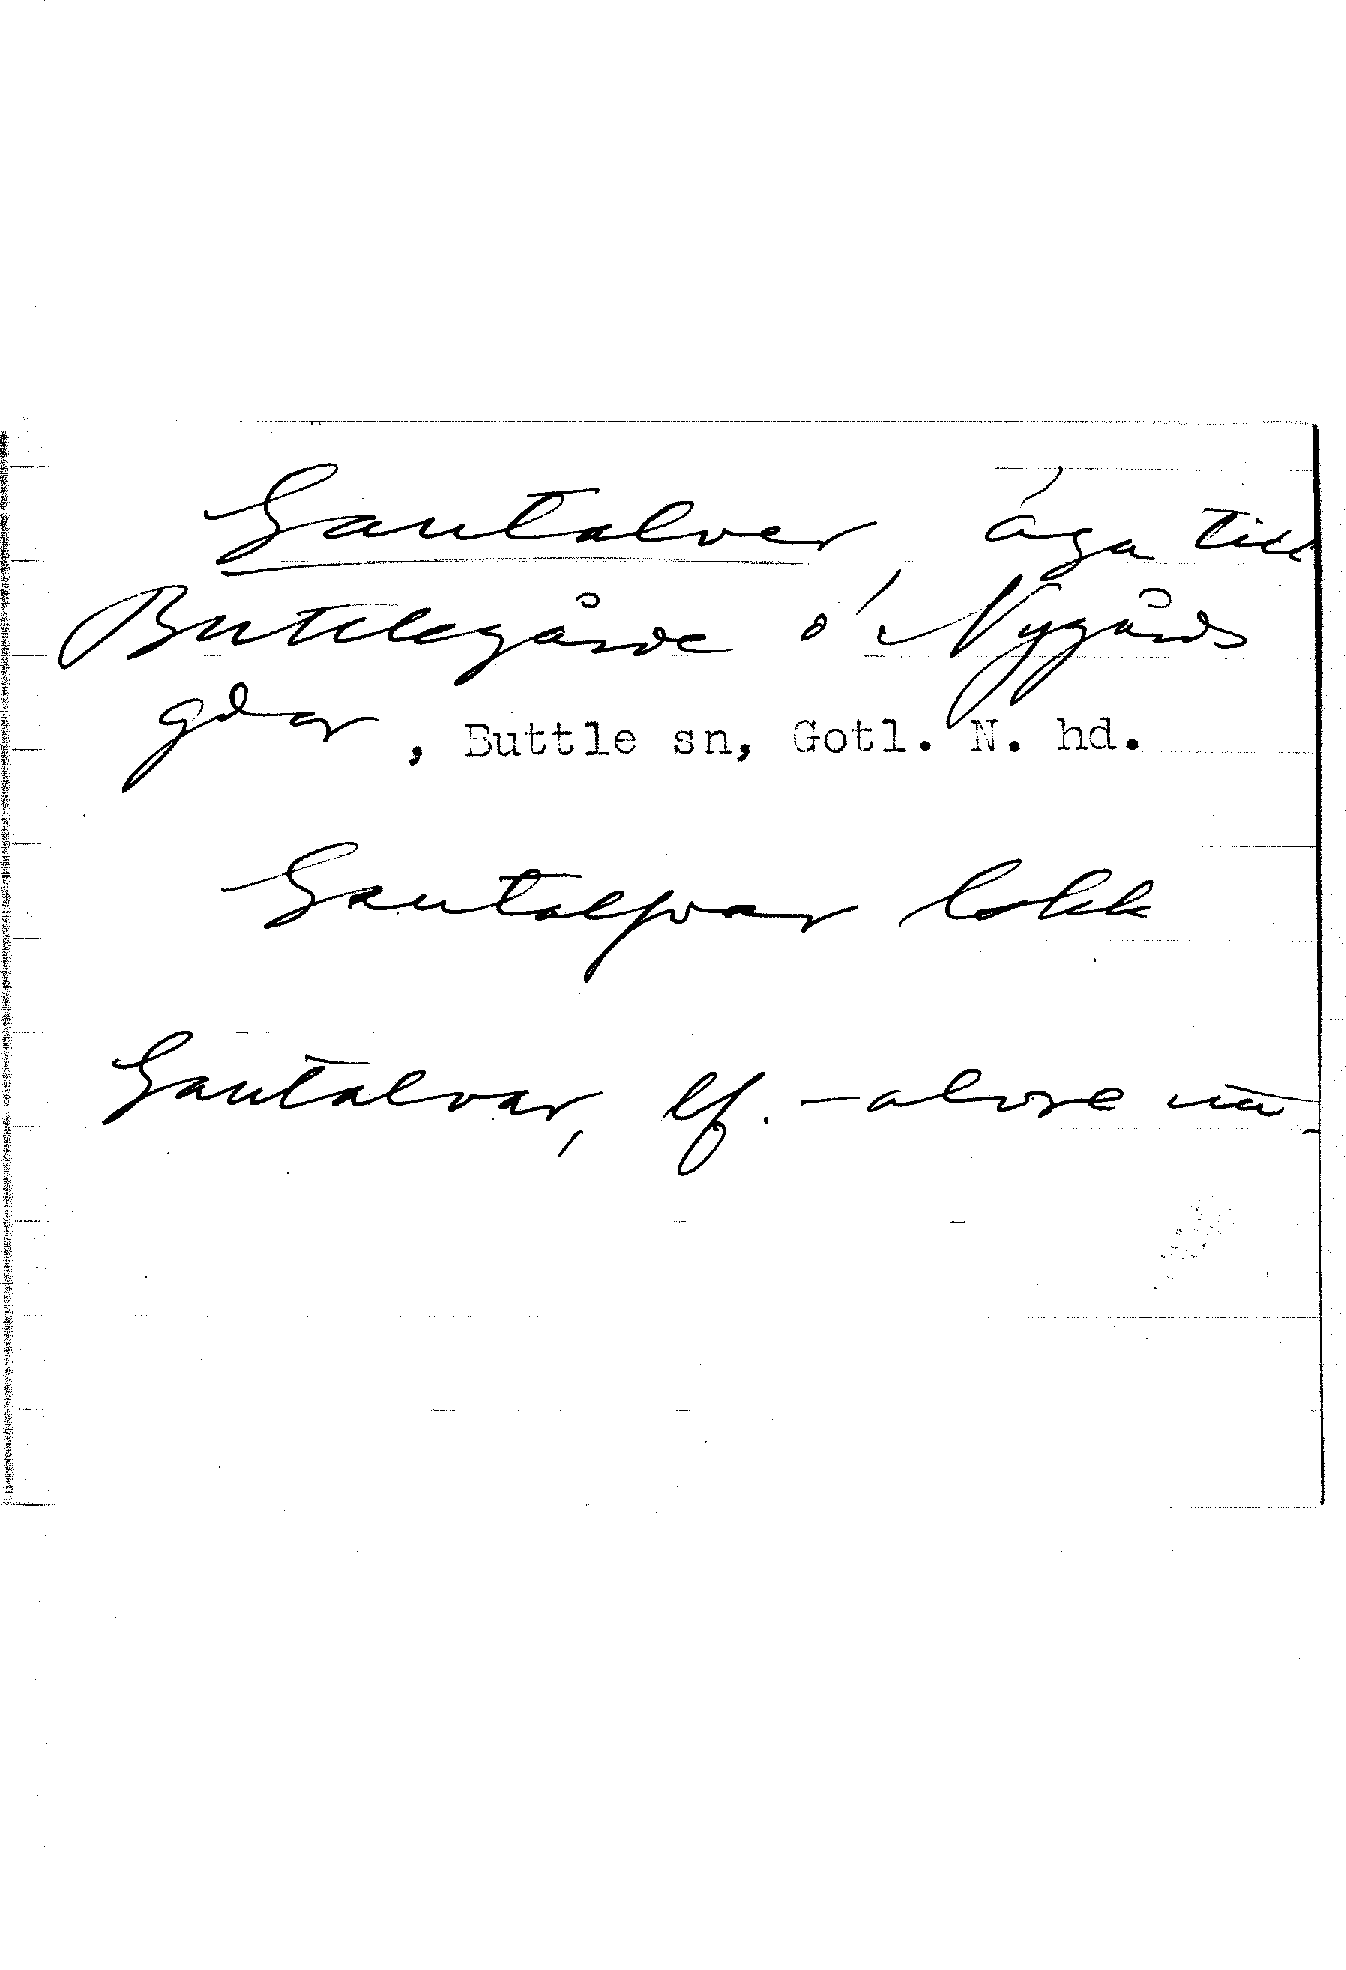 Gantalver, äga till
Buttlegårde o. Nygårds
gdar, Buttle sn, Gotl. N. hd.
Gantalfvar lokk
Gantalvar, ef. -alvre